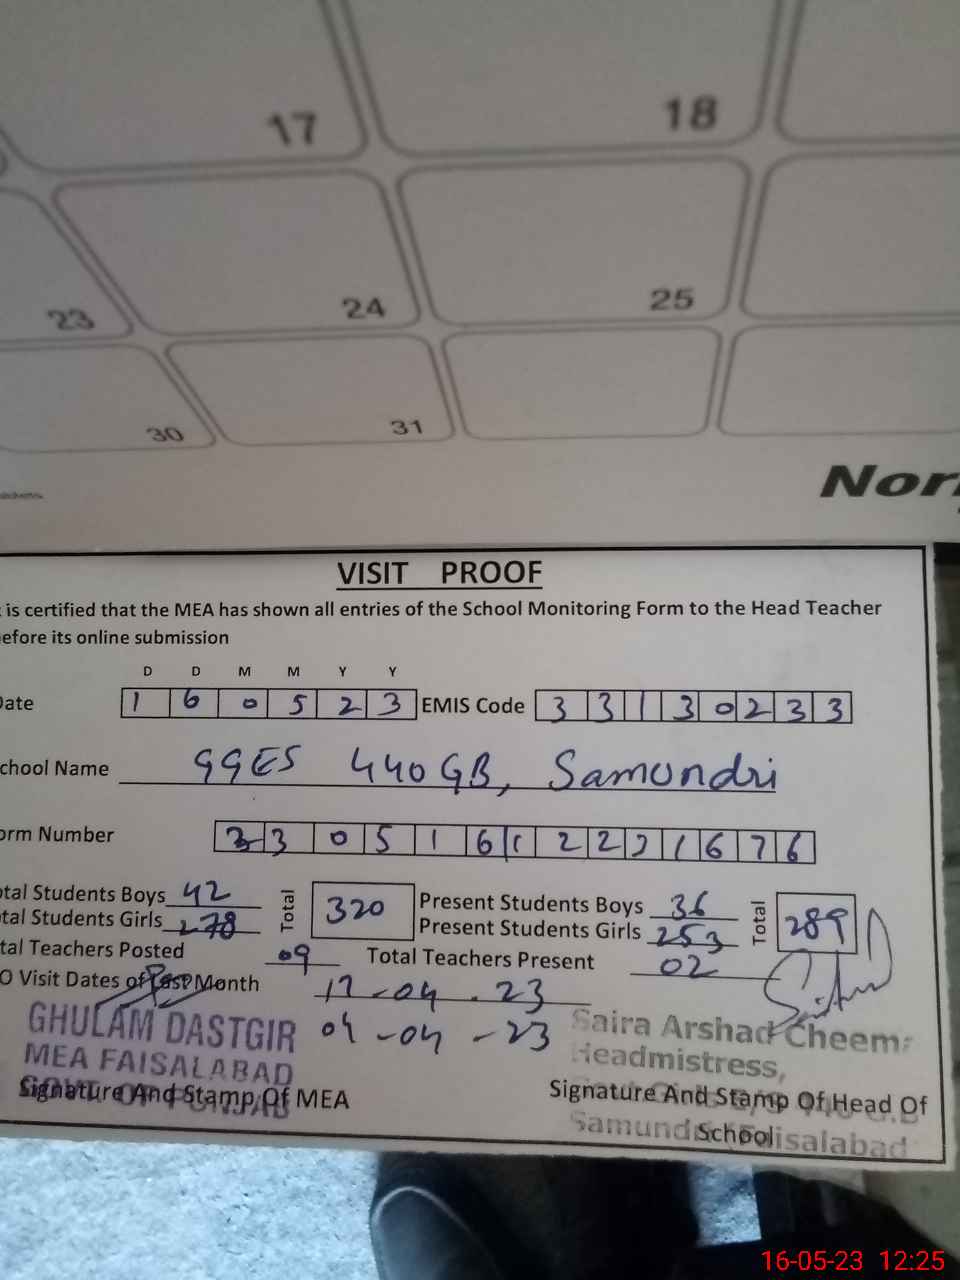 17 18
23 24 25
30 31
Nor
VISIT PROOF
is certified that the MEA has shown all entries of the School Monitoring Form to the Head Teacher
efore its online submission
D D M M Y Y
ate 1 6 0 5 2 3 EMIS Code 3 3 1 3 0 2 3 3
chool Name GGES 440 GB, Samundri
orm Number 3 3 0 5 1 6 1 2 2 2 1 6 7 6
otal Students Boys 42 Total 320 Present Students Boys 36 Total 289
tal Students Girls 278 Present Students Girls 253
tal Teachers Posted 09 Total Teachers Present 02
O Visit Dates of Past Month 17-04.23
04-04-23
GHULAM DASTGIR
MEA FAISALABAD
GOVT. OF PUNJAB
Signature And Stamp Of MEA
Saira Arshad Cheema
Headmistress,
Signature And Stamp Of Head Of
School
16-05-23 12:25